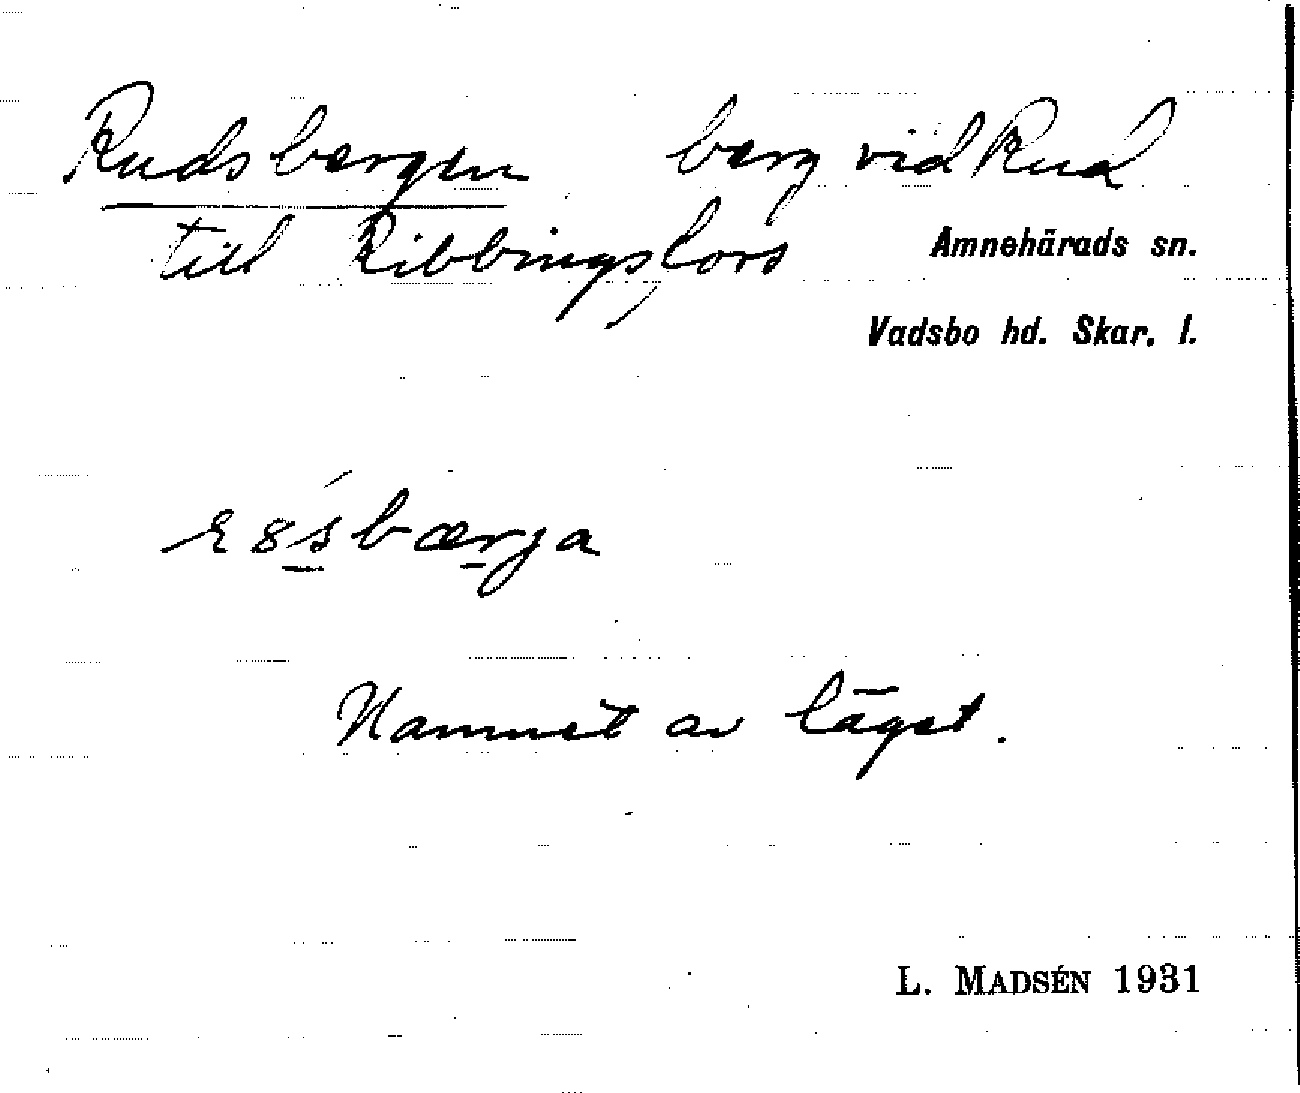 Rudsbergen berg vid Rud
till Ribbingsfors
Amnehärads sn.
Vadsbo hd. Skar. l.
Namnet av läget.
L. MADSÉN 1931